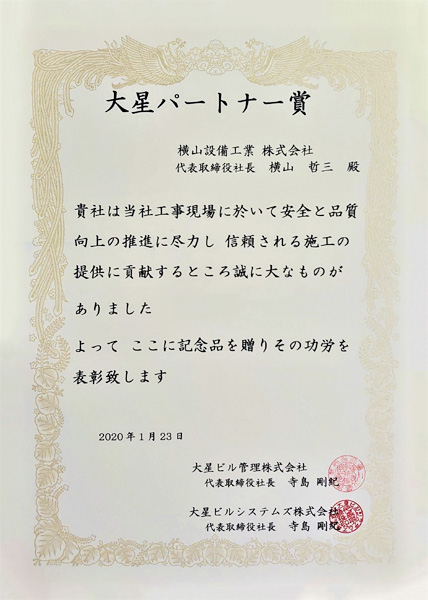 大星パートナー賞
横山設備工業 株式会社
代表取締役社長 横山 哲三 殿
貴社は当社工事現場に於いて安全と品質
向上の推進に尽力し 信頼される施工の
提供に貢献するところ誠に大なものが
ありました
よって ここに記念品を贈りその功労を
表彰致します
2020年1月23日
大星ビル管理株式会社
代表取締役社長 寺島 剛紀
大星ビルシステムズ株式会社
代表取締役社長 寺島 剛紀